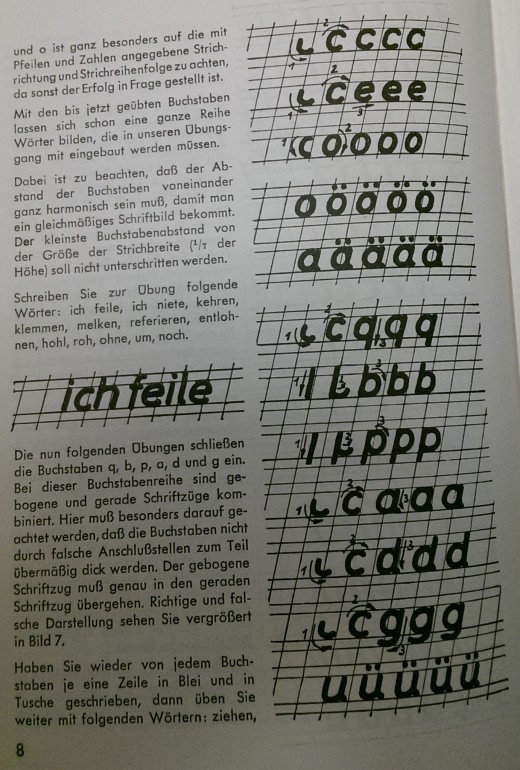 und o ist ganz besonders auf die mit
Pfeilen und Zahlen angegebene Strich-
richtung und Strichreihenfolge zu achten,
da sonst der Erfolg in Frage gestellt ist.
Mit den bis jetzt geübten Buchstaben
lassen sich schon eine ganze Reihe
Wörter bilden, die in unseren Übungs-
gang mit eingebaut werden müssen.
Dabei ist zu beachten, daß der Ab-
stand der Buchstaben voneinander
ganz harmonisch sein muß, damit man
ein gleichmäßiges Schriftbild bekommt.
Der kleinste Buchstabenabstand von
der Größe der Strichbreite (1/7 der
Höhe) soll nicht unterschritten werden.
Schreiben Sie zur Übung folgende
Wörter: ich feile, ich niete, kehren,
klemmen, melken, referieren, entloh-
nen, hohl, roh, ohne, um, noch.
ich feile
Die nun folgenden Übungen schließen
die Buchstaben q, b, p, a, d und g ein.
Bei dieser Buchstabenreihe sind ge-
bogene und gerade Schriftzüge kom-
biniert. Hier muß besonders darauf ge-
achtet werden, daß die Buchstaben nicht
durch falsche Anschlußstellen zum Teil
übermäßig dick werden. Der gebogene
Schriftzug muß genau in den geraden
Schriftzug übergehen. Richtige und fal-
sche Darstellung sehen Sie vergrößert
in Bild 7.
Haben Sie wieder von jedem Buch-
staben je eine Zeile in Blei und in
Tusche geschrieben, dann üben Sie
weiter mit folgenden Wörtern: ziehen,
8
1 2 c c c c
1 2 c e 3 e e
1 c o 2 o o o
o ö ö ö ö
a ä ä ä ä
1 2 c q 3 q q
1 l 2 b 3 b b
1 l 2 p 3 p p
1 2 c a 3 a a
1 2 c d 3 d d
1 2 c g 3 g g
u ü ü ü ü